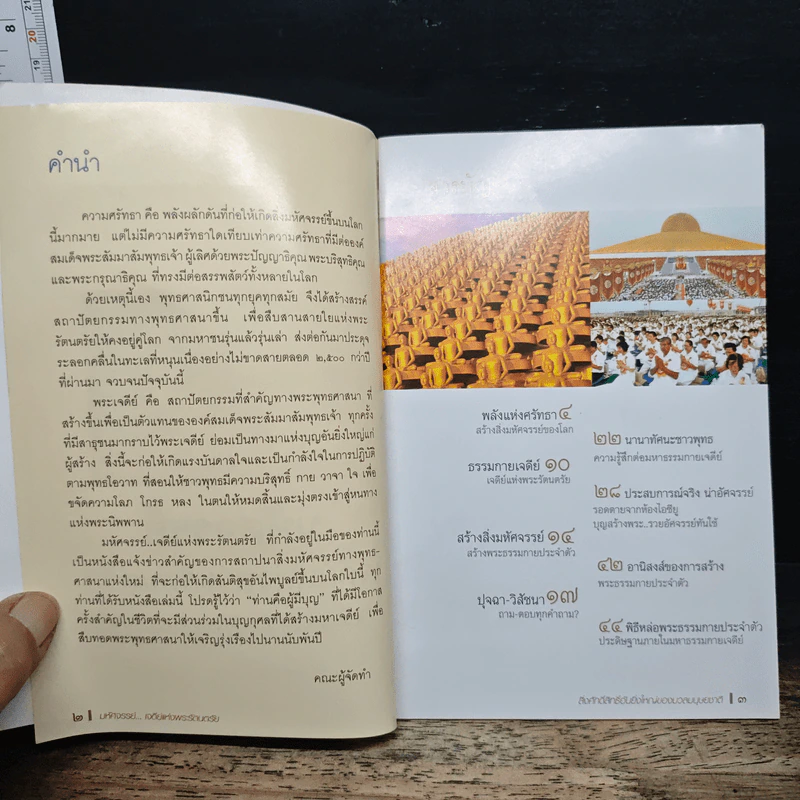 8
20
19
คำนำ
ความศรัทธา คือ พลังผลักดันที่ก่อให้เกิดสิ่งมหัศจรรย์ขึ้นบนโลก
นี้มากมาย แต่ไม่มีความศรัทธาใดเทียบเท่าความศรัทธาที่มีต่อองค์
สมเด็จพระสัมมาสัมพุทธเจ้า ผู้เลิศด้วยพระปัญญาธิคุณ พระบริสุทธิคุณ
และพระกรุณาธิคุณ ที่ทรงมีต่อสรรพสัตว์ทั้งหลายในโลก
ด้วยเหตุนี้เอง พุทธศาสนิกชนทุกยุคทุกสมัย จึงได้สร้างสรรค์
สถาปัตยกรรมทางพุทธศาสนาขึ้น เพื่อสืบสานสายใยแห่งพระ
รัตนตรัยให้คงอยู่คู่โลก จากมหาชนรุ่นแล้วรุ่นเล่า ส่งต่อกันมาประดุจ
ระลอกคลื่นในทะเลที่หนุนเนื่องอย่างไม่ขาดสายตลอด ๒,๕๐๐ กว่าปี
ที่ผ่านมา จวบจนปัจจุบันนี้
พระเจดีย์ คือ สถาปัตยกรรมที่สำคัญทางพระพุทธศาสนา ที่
สร้างขึ้นเพื่อเป็นตัวแทนขององค์สมเด็จพระสัมมาสัมพุทธเจ้า ทุกครั้ง
ที่มีสาธุชนมากราบไหว้พระเจดีย์ ย่อมเป็นทางมาแห่งบุญอันยิ่งใหญ่แก่
ผู้สร้าง สิ่งนี้จะก่อให้เกิดแรงบันดาลใจและเป็นกำลังใจในการปฏิบัติ
ตามพุทธโอวาท ที่สอนให้ชาวพุทธมีความบริสุทธิ์ กาย วาจา ใจ เพื่อ
ขจัดความโลภ โกรธ หลง ในตนให้หมดสิ้นและมุ่งตรงเข้าสู่หนทาง
แห่งพระนิพพาน
มหัศจรรย์..เจดีย์แห่งพระรัตนตรัย ที่กำลังอยู่ในมือของท่านนี้
เป็นหนังสือแจ้งข่าวสำคัญของการสถาปนาสิ่งมหัศจรรย์ทางพุทธ-
ศาสนาแห่งใหม่ ที่จะก่อให้เกิดสันติสุขอันไพบูลย์ขึ้นบนโลกใบนี้ ทุก
ท่านที่ได้รับหนังสือเล่มนี้ โปรดรู้ไว้ว่า “ท่านคือผู้มีบุญ” ที่ได้มีโอกาส
ครั้งสำคัญในชีวิตที่จะมีส่วนร่วมในบุญกุศลที่ได้สร้างมหาเจดีย์ เพื่อ
สืบทอดพระพุทธศาสนาให้เจริญรุ่งเรืองไปนานนับพันปี
คณะผู้จัดทำ
๒ | มหัศจรรย์... เจดีย์แห่งพระรัตนตรัย
พลังแห่งศรัทธา ๔
สร้างสิ่งมหัศจรรย์ของโลก
ธรรมกายเจดีย์ ๑๐
เจดีย์แห่งพระรัตนตรัย
สร้างสิ่งมหัศจรรย์ ๑๔
สร้างพระธรรมกายประจำตัว
ปุจฉา-วิสัชนา ๑๗
ถาม-ตอบทุกคำถาม?
๒๒ นานาทัศนะชาวพุทธ
ความรู้สึกต่อมหาธรรมกายเจดีย์
๒๘ ประสบการณ์จริง น่าอัศจรรย์
รอดตายจากห้องไอซียู
บุญสร้างพระ..รวยอัศจรรย์ทันใช้
๔๒ อานิสงส์ของการสร้าง
พระธรรมกายประจำตัว
๔๔ พิธีหล่อพระธรรมกายประจำตัว
ประดิษฐานภายในมหาธรรมกายเจดีย์
สิ่งศักดิ์สิทธิ์อันยิ่งใหญ่ของมวลมนุษยชาติ | ๓